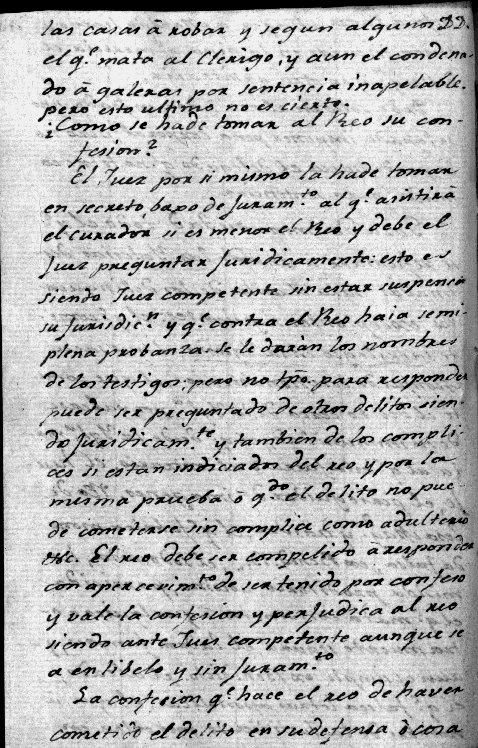 las casas â robar y segun algunos DD.
el q.e mata al Clerigo, y aun el condena-
do â galeras por sentencia inapelable.
pero esto ultimo no es cierto.
¿Como se hade tomar al Reo su con-
fesion?
El Juez por si mismo la hade tomar
en secreto, baxo de Juram.to al q.e asistirâ
el curador, si es menor el Reo y debe el
Juez preguntar Juridicamente: esto es
siendo Juez competente sin estar suspensa
su Jurisdic.n y q.e contra el Reo haia semi-
plena probanza. se le daràn los nombres
de los testigos; pero no tpô. para responder
puede ser preguntado de otros delitos sien-
do Juridicam.te y tambien de los compli-
ces si estan indiciados del reo y por la
misma prueba ô q.do el delito no pue-
de cometerse sin complice como adulterio
&c. El reo debe ser compelido â responder
con apercevim.to de ser tenido por confeso
y vale la confesion y perJudica al reo
siendo ante Juez competente aunque se
a en libelo y sin Juram.to
La confesion q.e hace el reo de haver
cometido el delito en su defensa ô cosa